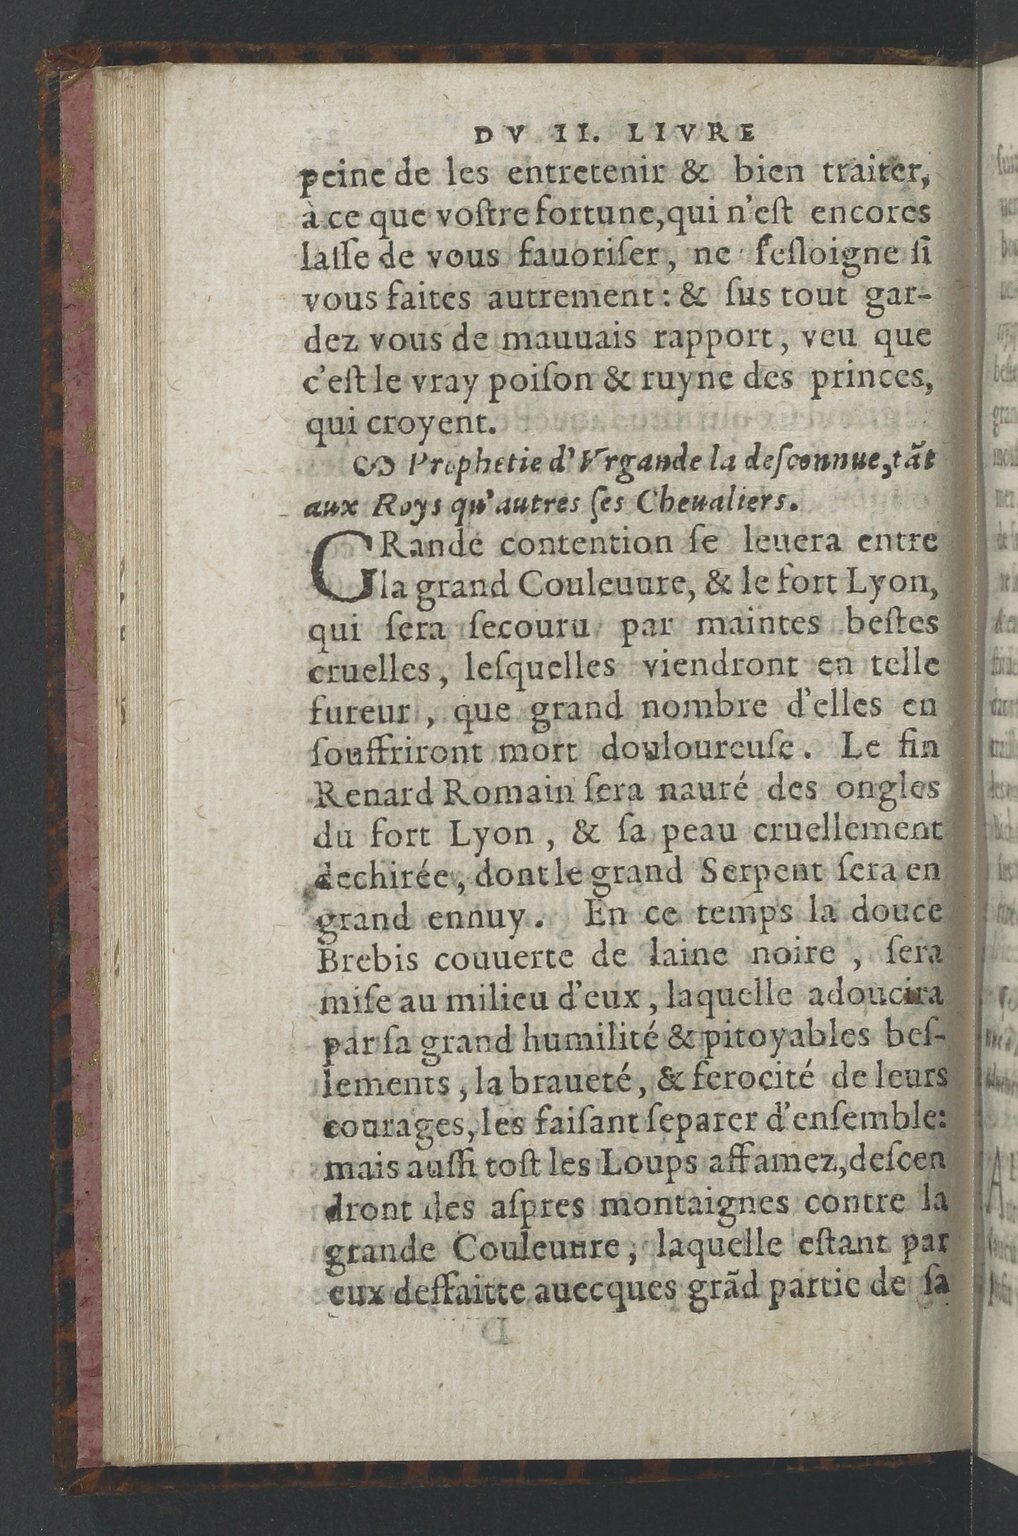 DV II. LIVRE
peine de les entretenir & bien traiter,
à ce que voſtre fortune, qui n'eſt encores
laſſe de vous fauoriſer, ne ſ'eſloigne ſi
vous faites autrement : & ſus tout gar-
dez vous de mauuais rapport, veu que
c'eſt le vray poiſon & ruyne des princes,
qui croyent.
Prophetie d'Vrgande la deſconnue, tãt
aux Roys qu'autres ſes Cheualiers.
GRande contention ſe leuera entre
la grand Couleuure, & le fort Lyon,
qui ſera ſecouru par maintes beſtes
cruelles, leſquelles viendront en telle
fureur, que grand nombre d'elles en
ſouffriront mort douloureuſe. Le fin
Renard Romain ſera nauré des ongles
du fort Lyon, & ſa peau cruellement
dechirée, dont le grand Serpent ſera en
grand ennuy. En ce temps la douce
Brebis couuerte de laine noire, ſera
miſe au milieu d'eux, laquelle adoucira
par ſa grand humilité & pitoyables beſ-
lements, la braueté, & ferocité de leurs
courages, les faiſant ſeparer d'enſemble:
mais auſſi toſt les Loups affamez, deſcen
dront des aſpres montaignes contre la
grande Couleuure, laquelle eſtant par
eux deffaitte auecques grãd partie de ſa